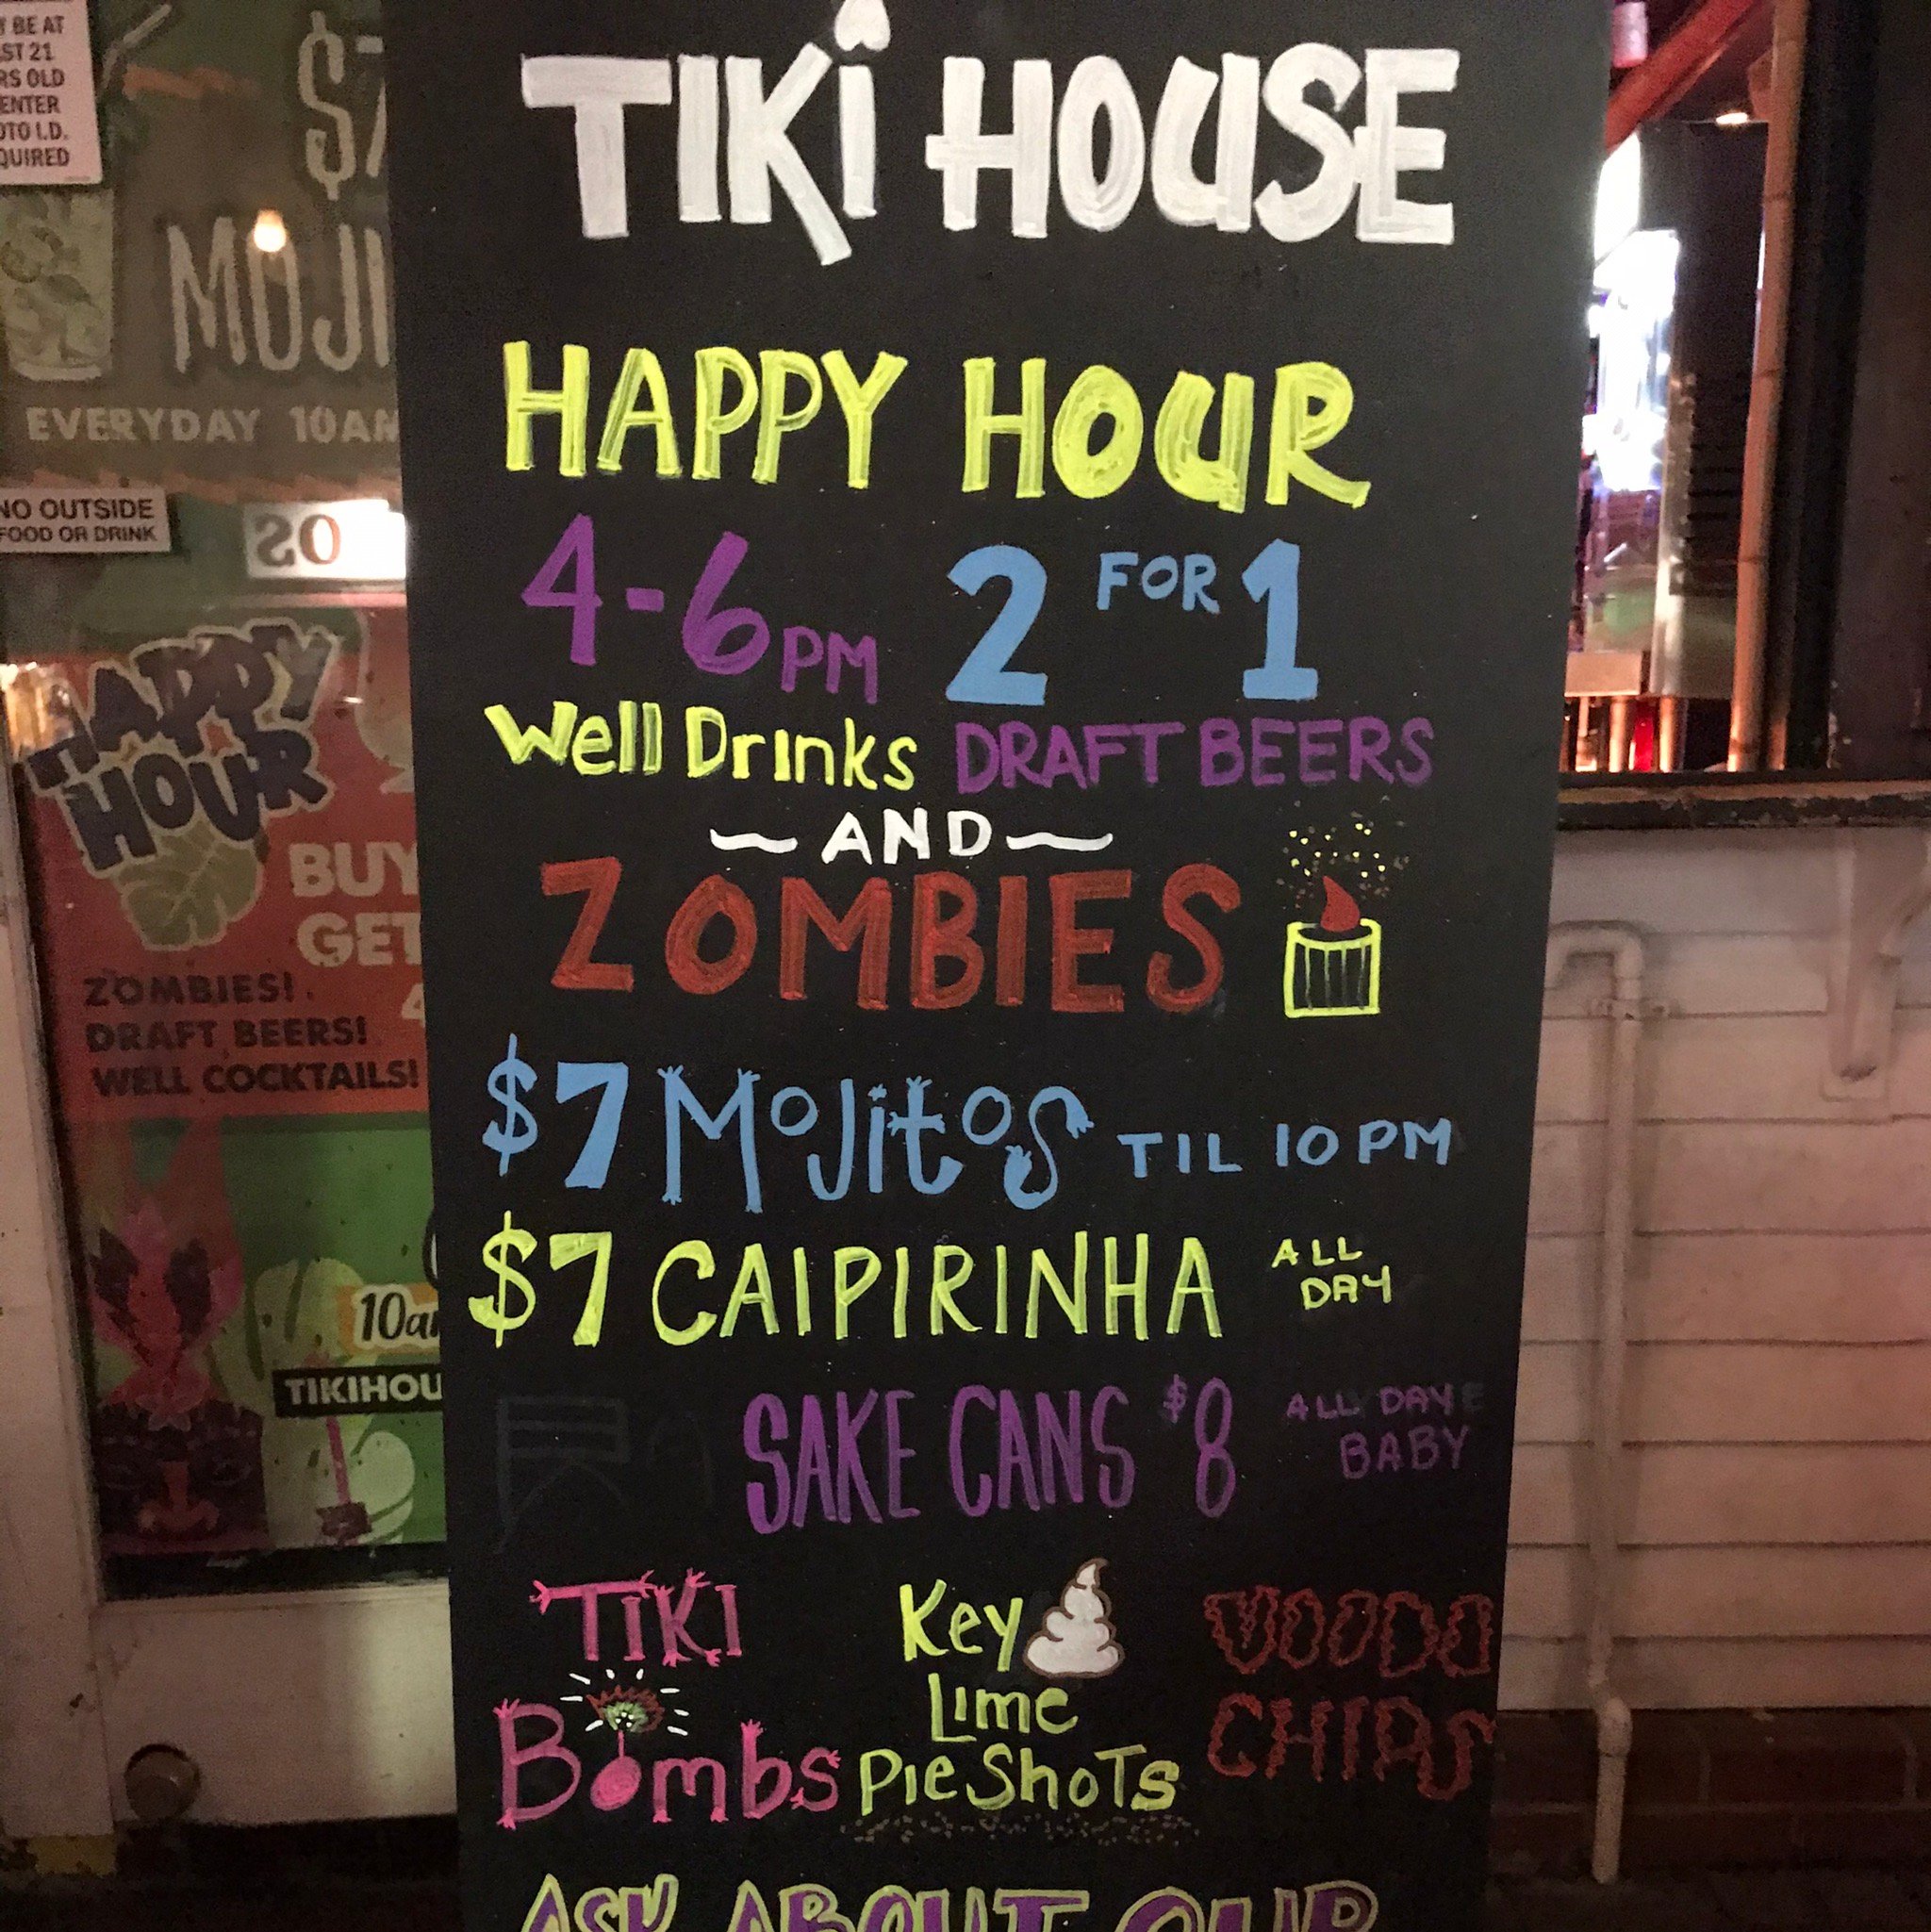 Y BE AT
ST 21
RS OLD
ENTER
OTO I.D.
QUIRED
$7
MOJI
EVERYDAY 10AM
NO OUTSIDE
FOOD OR DRINK
HAPPY
HOUR
BUY
GET
4
ZOMBIES!
DRAFT BEERS!
WELL COCKTAILS!
10am
TIKIHOU
TIKI HOUSE
HAPPY HOUR
4-6PM 2 FOR 1
Well Drinks DRAFT BEERS
~AND~
ZOMBIES
$7 MOJitos TIL 10 PM
$7 CAIPIRINHA ALL DAY
SAKE CANS $8 ALL DAY BABY
TIKI
Bombs
Key
Lime
Pie Shots
VOODOO
CHIPS
ASK ABOUT OUR